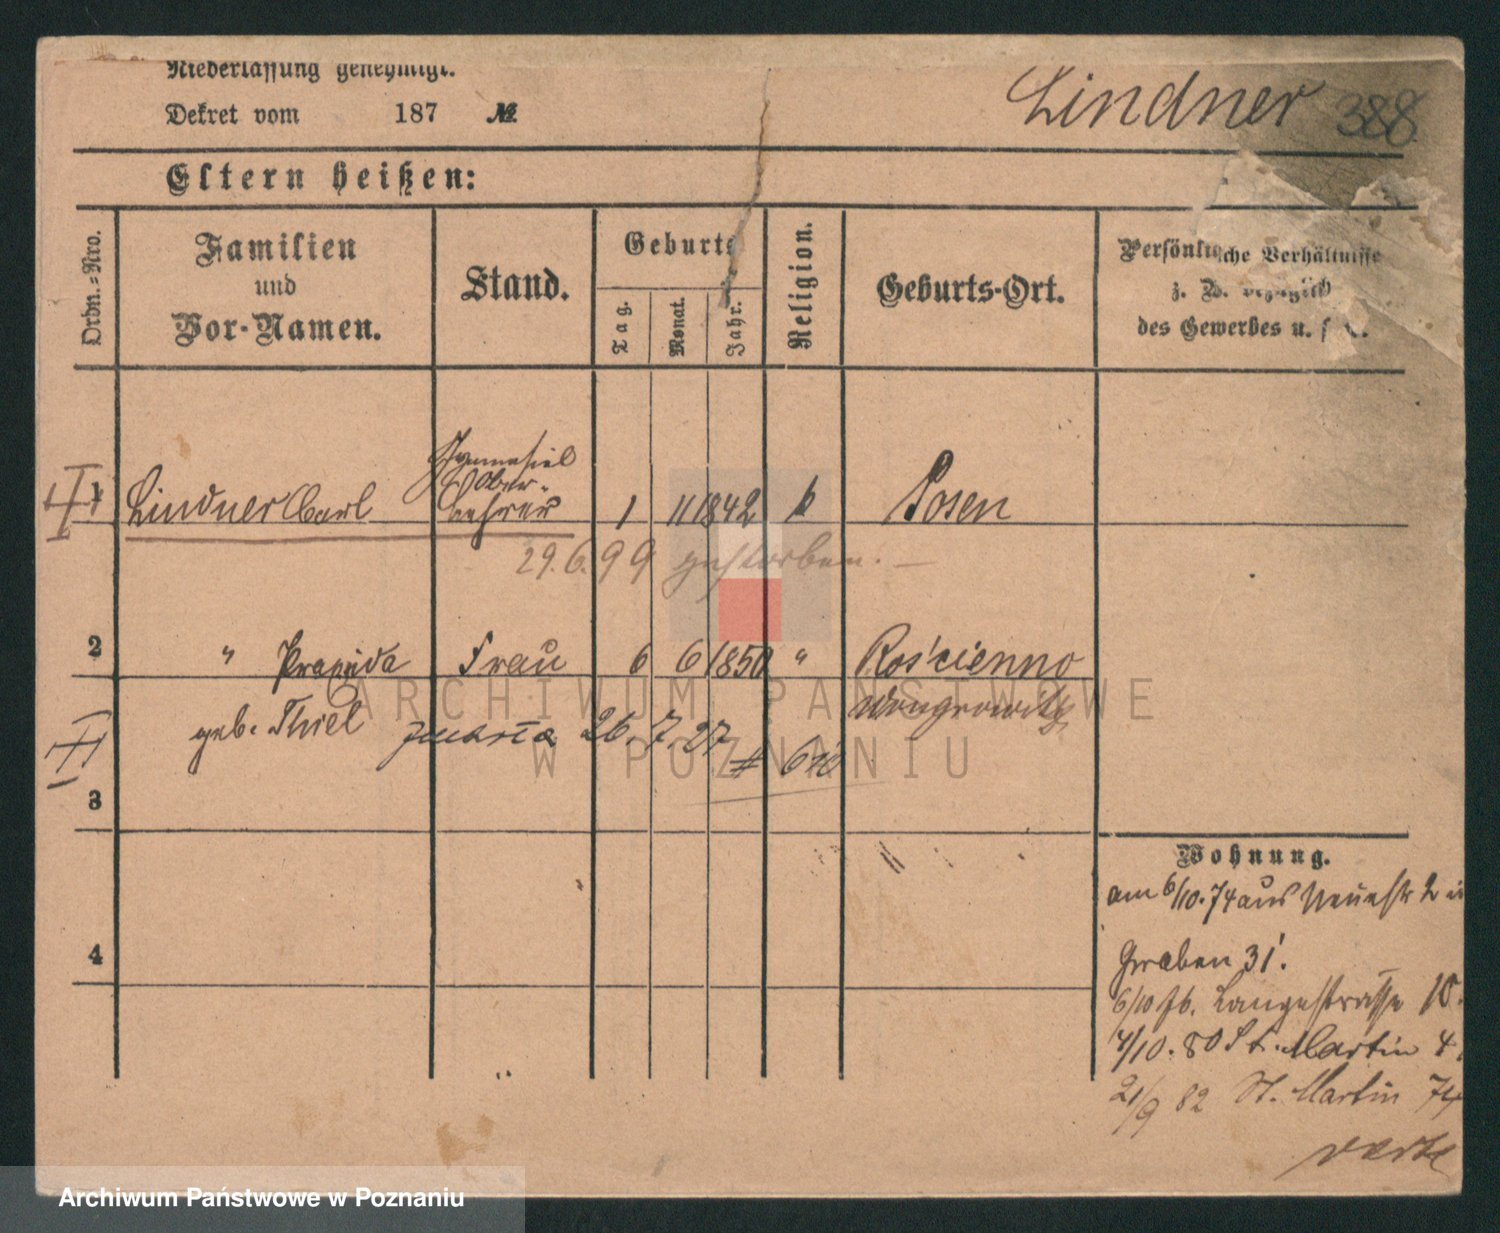 Niederlassung genehmigt.
Dekret vom 187 №
Lindner 388
Eltern heißen:
Ordn.-Nro.
Familien und Vor-Namen.
Stand.
Geburts
Tag.
Monat.
Jahr.
Religion.
Geburts-Ort.
Persönliche Verhältnisse
z. B. bezüglich
des Gewerbes u. s
1 Lindner Carl Gymnasial Ober- lehrer 1 11 1842 k Posen
29.6.99 gestorben. —
2 " Praxeda Frau 6 6 1850 " Rościenno
geb. Thiel Wongrowitz
zmarła 26.7.27 # 610
3
4
Wohnung.
am 6/10.74 aus Neuestr 2
Graben 31.
6/10 76. Langestrasse 10.
4/10.80 St. Martin 4
21/9 82 St. Martin 74
verte
ARCHIWUM PAŃSTWOWE
W POZNANIU
Archiwum Państwowe w Poznaniu